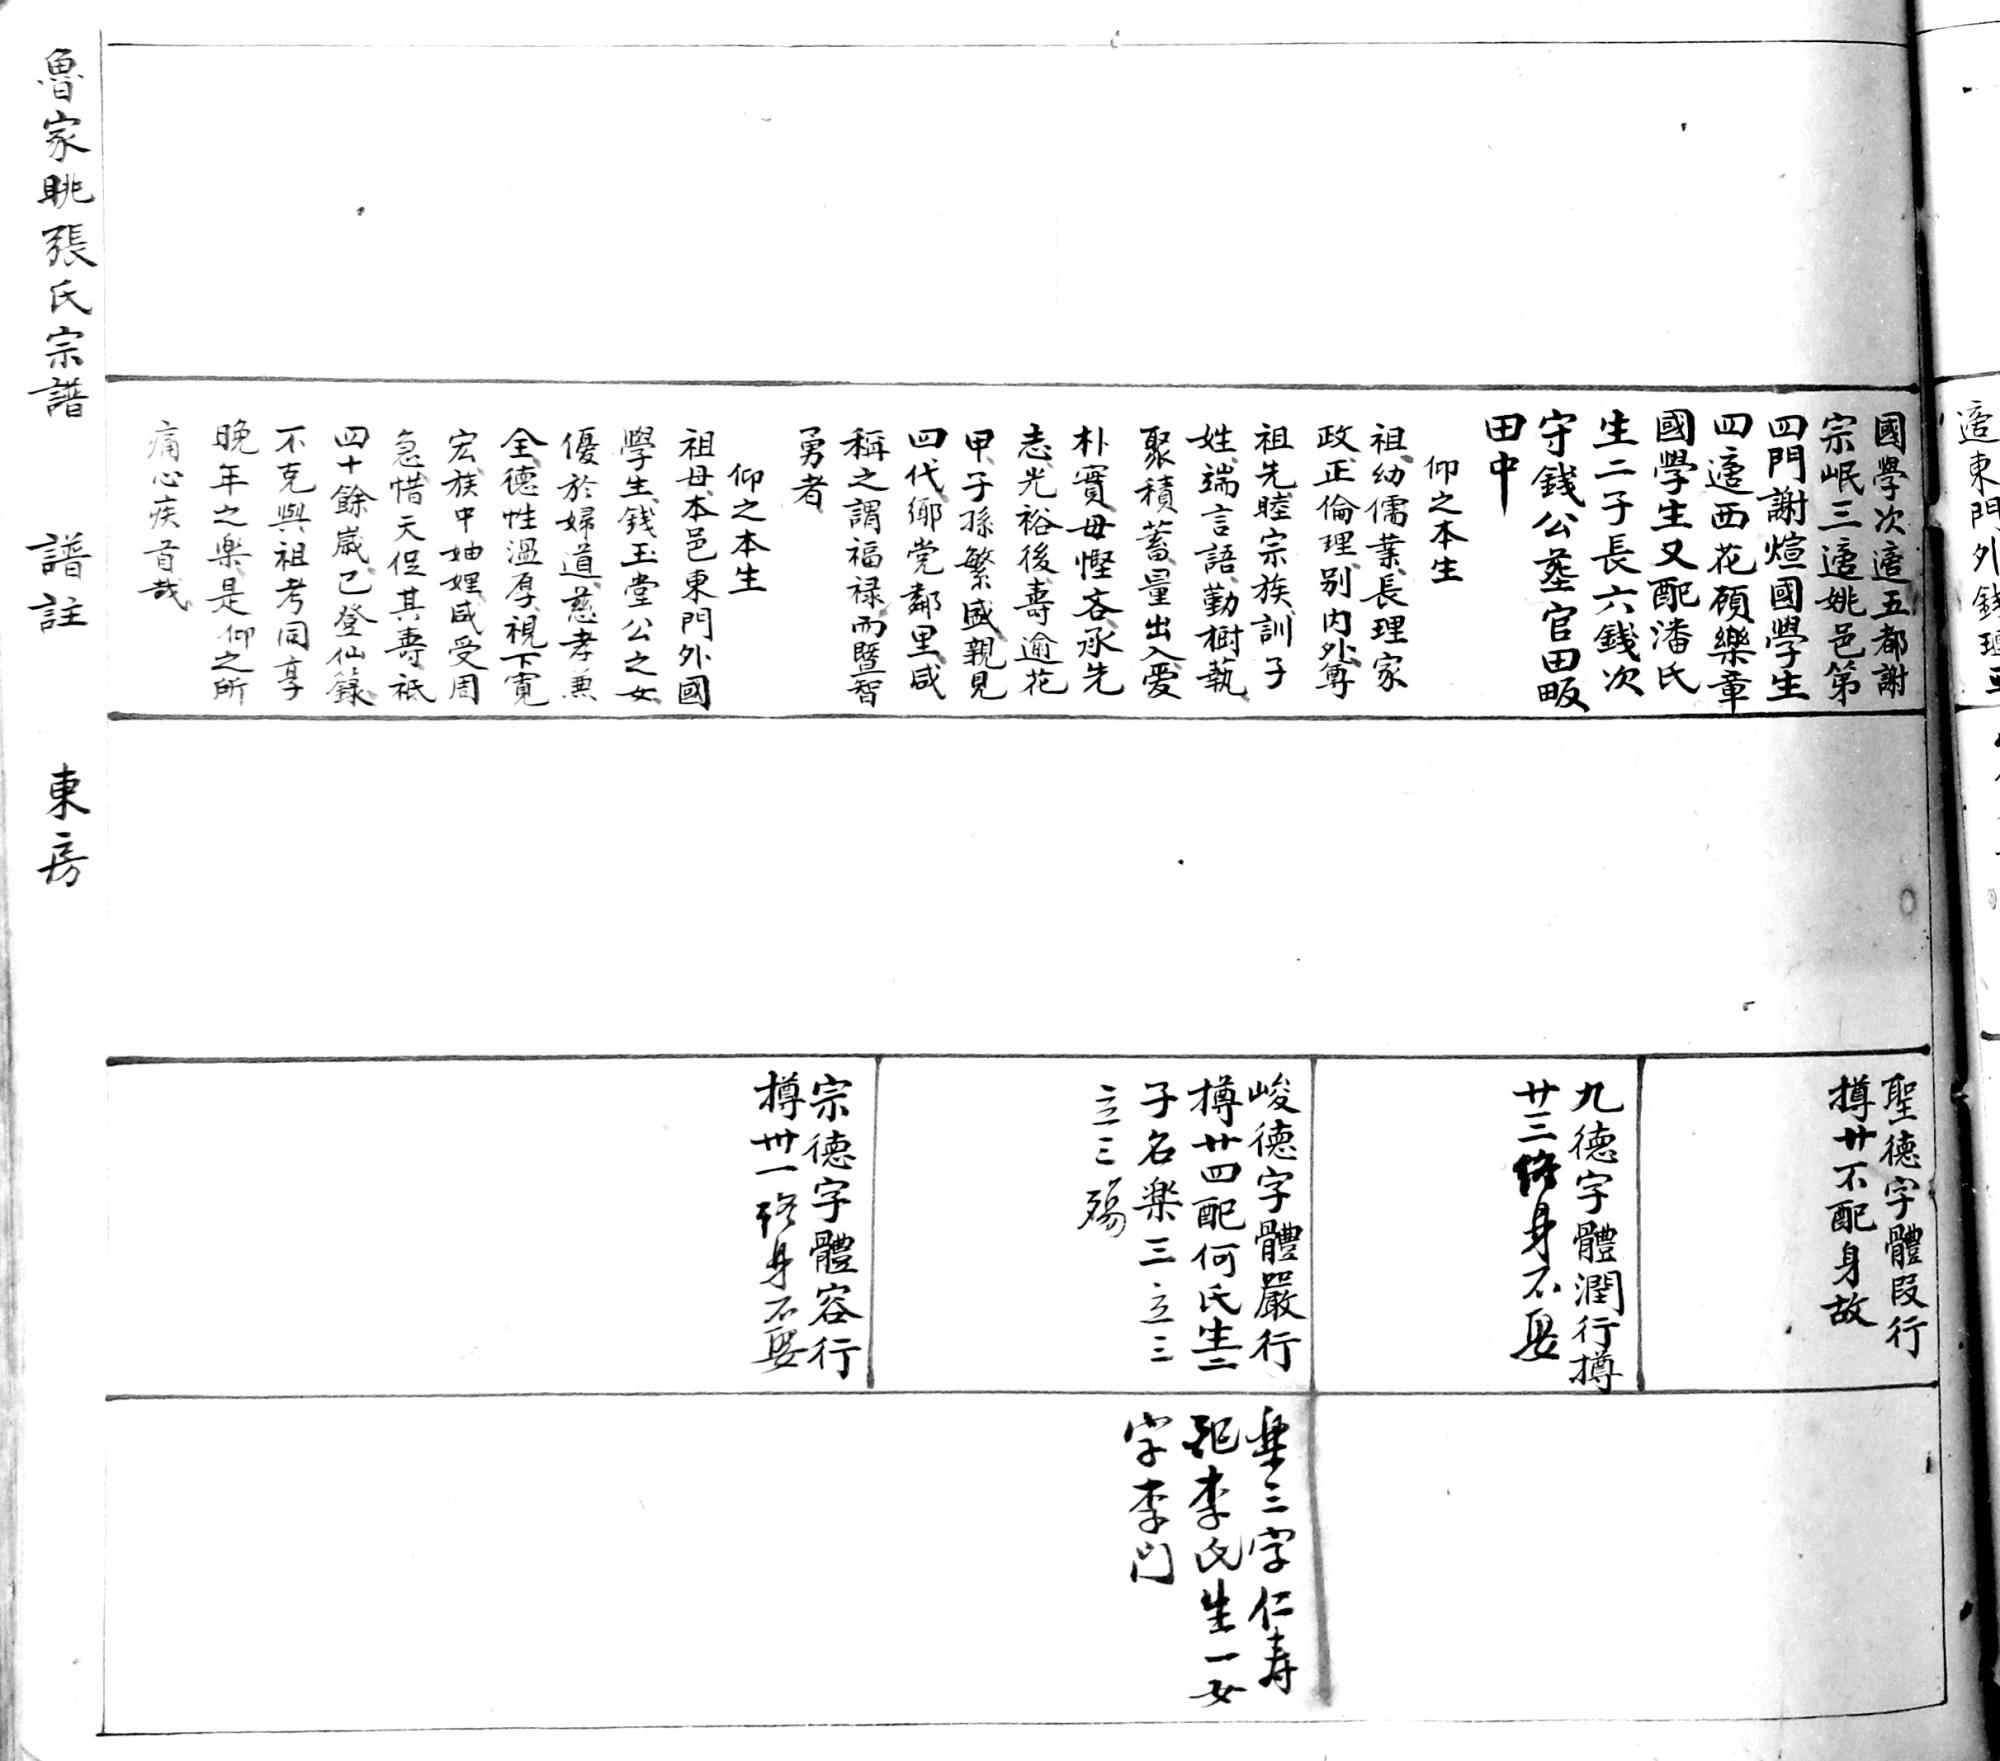 適東門外錢
國學次適五都謝
宗岷三適姚邑第
四門謝煊國學生
四適西花碩樂章
國學生又配潘氏
生二子長六錢次
守錢公塟官田畈
田中
仰之本生
祖幼儒業長理家
政正倫理别内外尊
祖先睦宗族訓子
姓端言語勤樹執
聚積蓄量出入愛
朴實毋慳吝承先
志光裕後壽逾花
甲子孫繁盛親見
四代鄉党鄰里咸
稱之謂福禄而暨智
勇者
仰之本生
祖母本邑東門外國
學生錢玉堂公之女
優於婦道慈孝兼
全德性溫厚視下寬
宏族中妯娌咸受周
急惜天促其壽祗
四十餘歲已登仙籙
不克與祖考同享
晚年之樂是仰之所
痛心疾首哉
聖德字體段行
撙廿不配身故
九德字體潤行撙
廿三終身不娶
峻德字體嚴行
撙廿四配何氏生二
子名楽三立三
立三殤
宗德字體容行
撙卅一終身不娶
樂三字仁寿
配李氏生一女
字李门
魯家眺張氏宗譜
譜註
東房